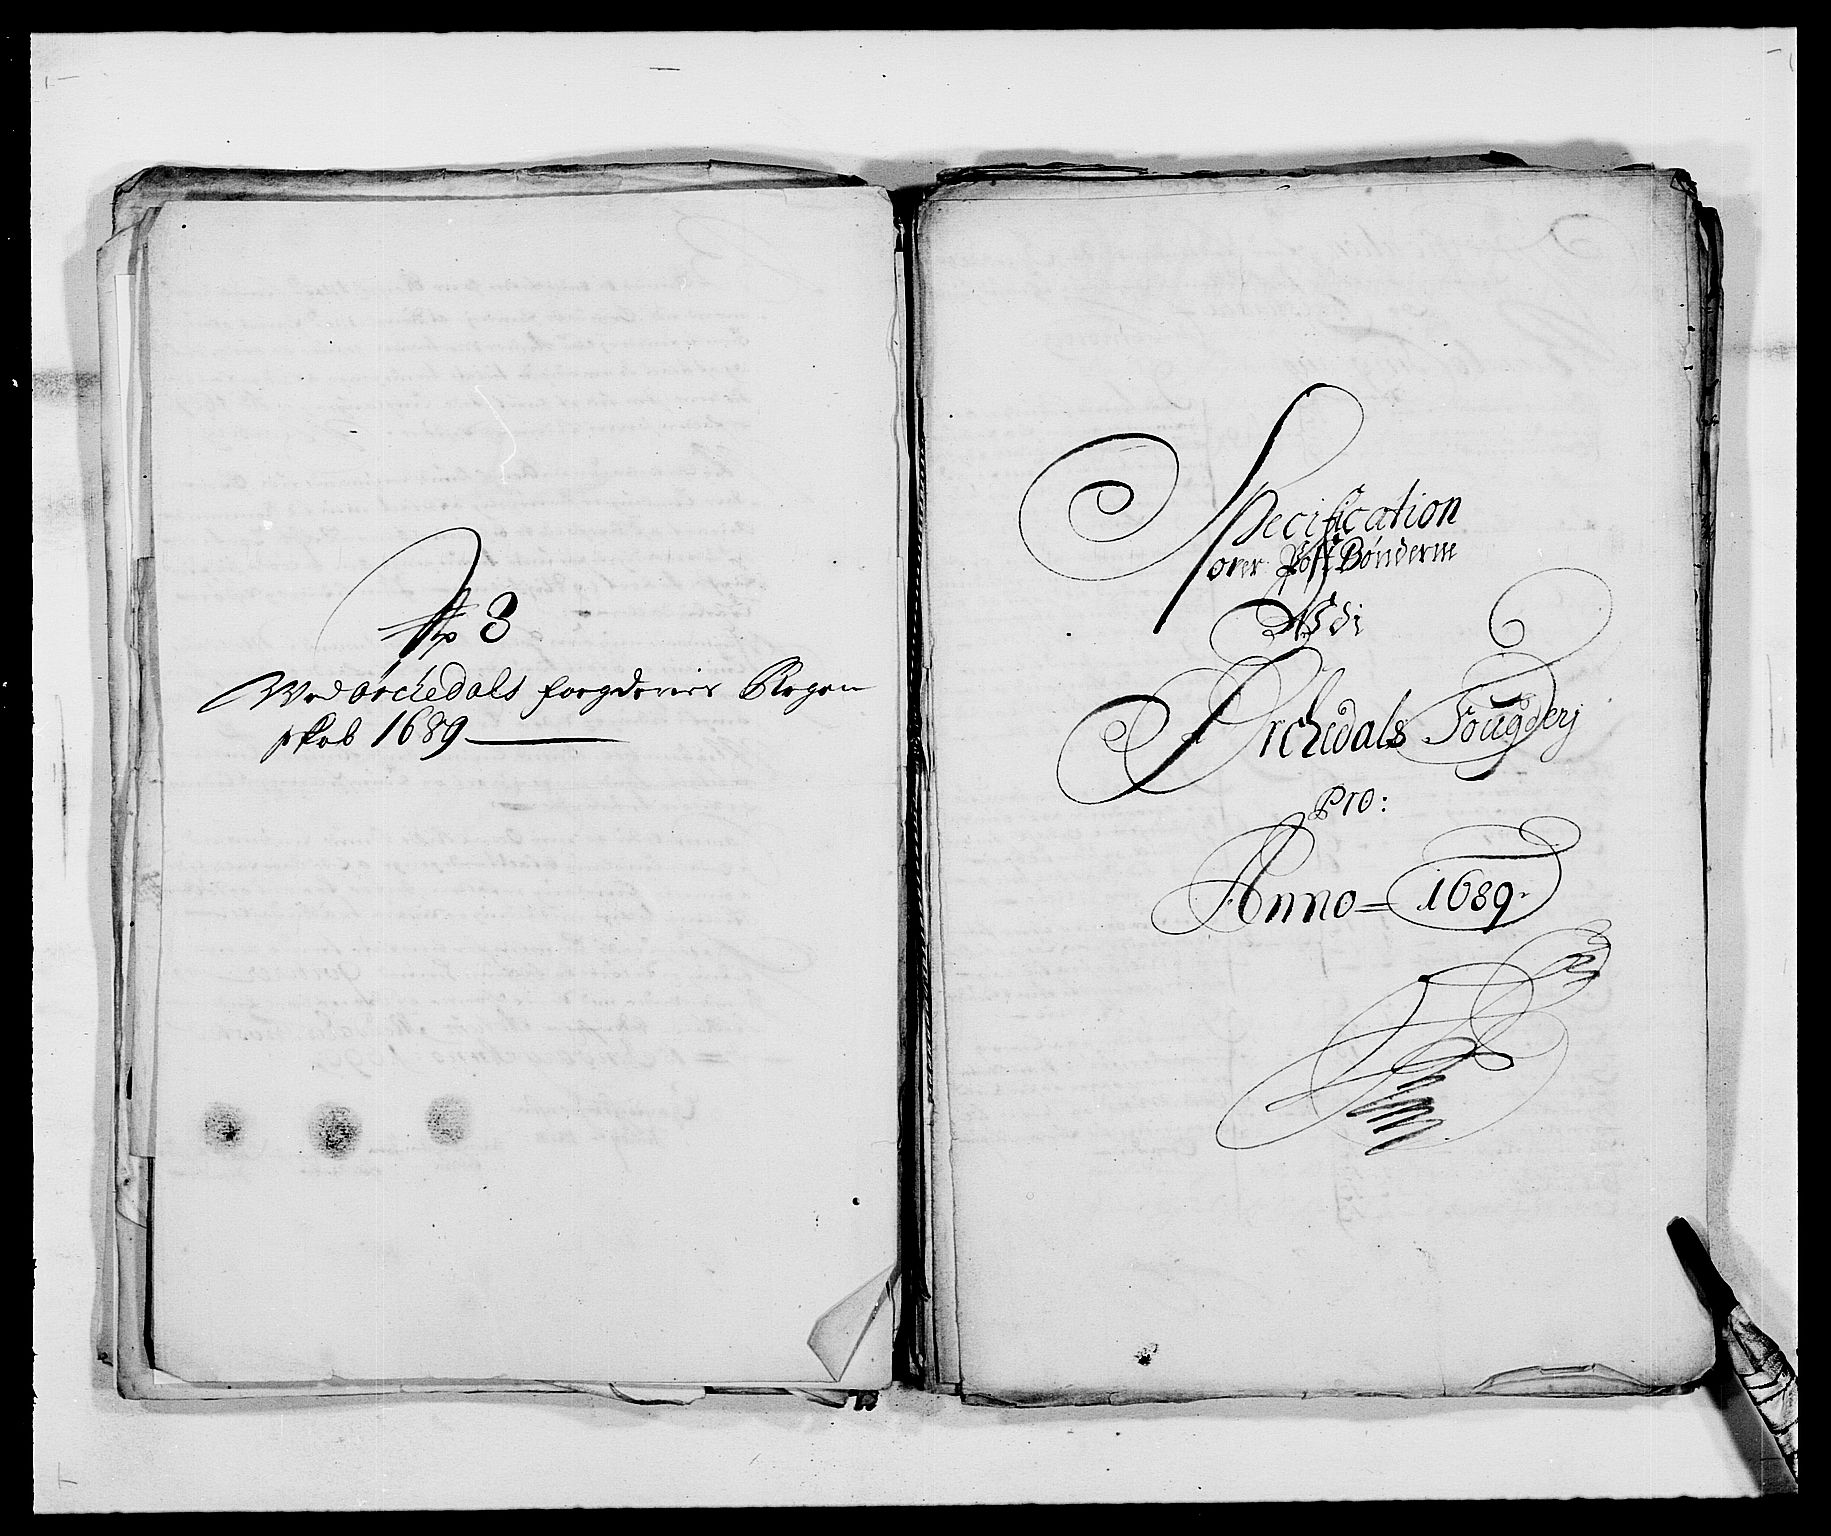 No 3
Wed Orchedals foegderies Regen
skab 1689
Specification
over Post Bønderne
Udi
Orchedals Fougderj
Pro:
Anno = 1689.